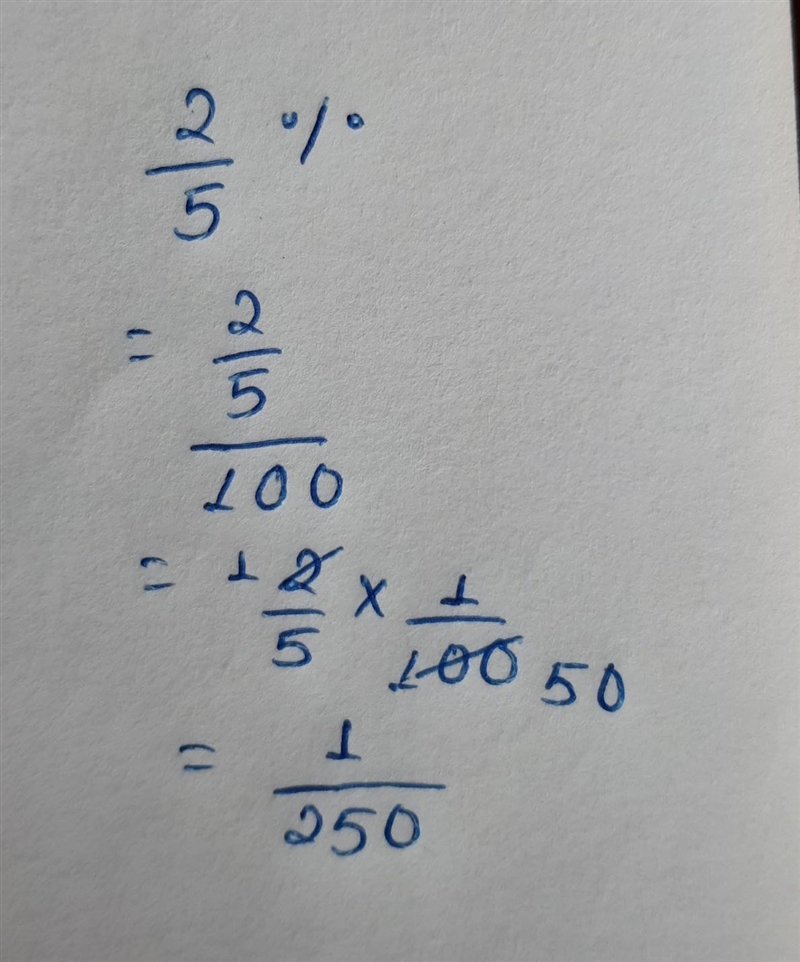 2/5 %
= (2/5)/100
= 1 2/5 × 1/100 50
= 1/250